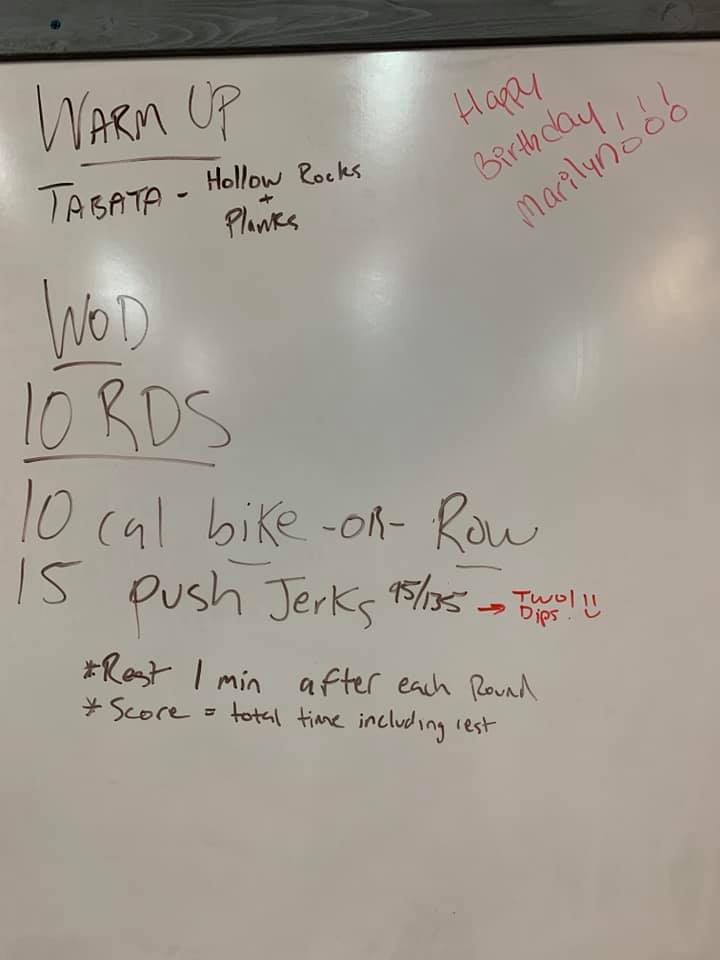 WARM UP
TABATA - Hollow Rocks
+
Planks
Happy
Birthday
Marilyn!!!
WOD
10 RDS
10 cal bike -OR- Row
15 push Jerks 95/135 → Two!!!
Dips.
*Rest 1 min after each Round
*Score = total time including rest